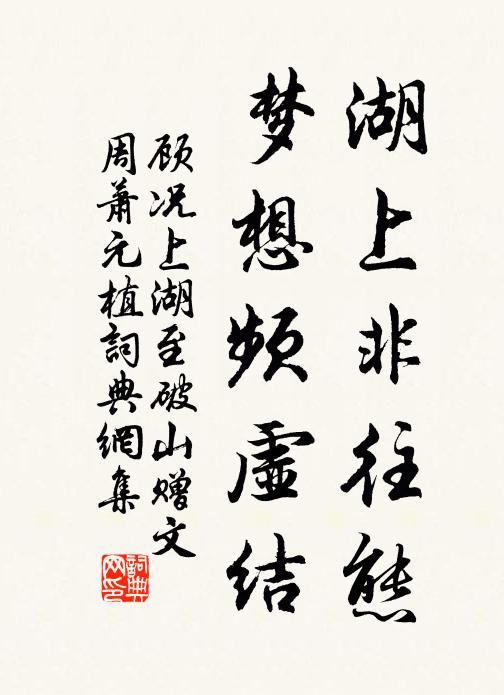 湖上非往態
梦想频虚结
顾况上湖至破山赠文
周萧元植詞典網集
詞典
网印